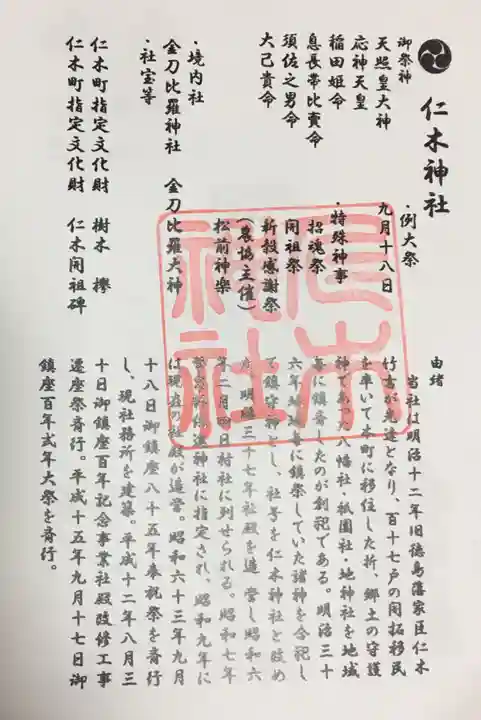 仁木神社
御祭神
天照皇大神
応神天皇
稲田姫命
息長帯比賣命
須佐之男命
大己貴命
・境内社
金刀比羅神社 金刀比羅大神
・社宝等
仁木町指定文化財 樹木 欅
仁木町指定文化財 仁木開祖碑
・例大祭
九月十八日
・特殊神事
招魂祭
開祖祭
新穀感謝祭
(農協主催)
松前神楽
仁木神社
由緒
当社は明治十二年旧徳島藩家臣仁木
竹吉が先達となり、百十七戸の開拓移民
を率いて本町に移住した折、郷土の守護
神であった八幡社・祇園社・地神社を地域
毎に鎮斎したのが創祀である。明治三十
六年地域毎に鎮祭していた諸神を合祀し
て鎮守神とし、社号を仁木神社と改め
た。明治三十七年社殿を造営し昭和六
年二月四日村社に列せられる。昭和七年
神社に指定され、昭和九年に
は現在の社殿が造営。昭和六十三年九月
十八日御鎮座八十五年奉祝祭を斎行
し、現社務所を建築。平成十二年八月三
十日御鎮座百年記念事業社殿改修工事
遷座祭斎行。平成十五年九月十七日御
鎮座百年式年大祭を斎行。